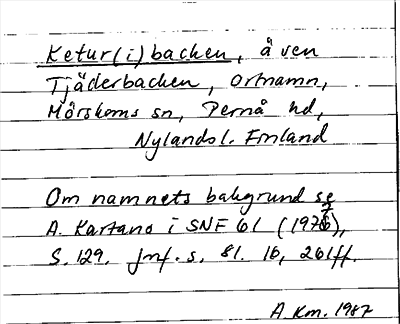 Ketur(i)backen, även
Tjäderbacken, ortnamn,
Mörskoms sn, Pernå hd,
Nylands l. Finland
Om namnets bakgrund se
A. Kartano i SNF 61 (1976),
S. 129. Jmf. s. 81. 16, 261ff.
A. Km. 1987